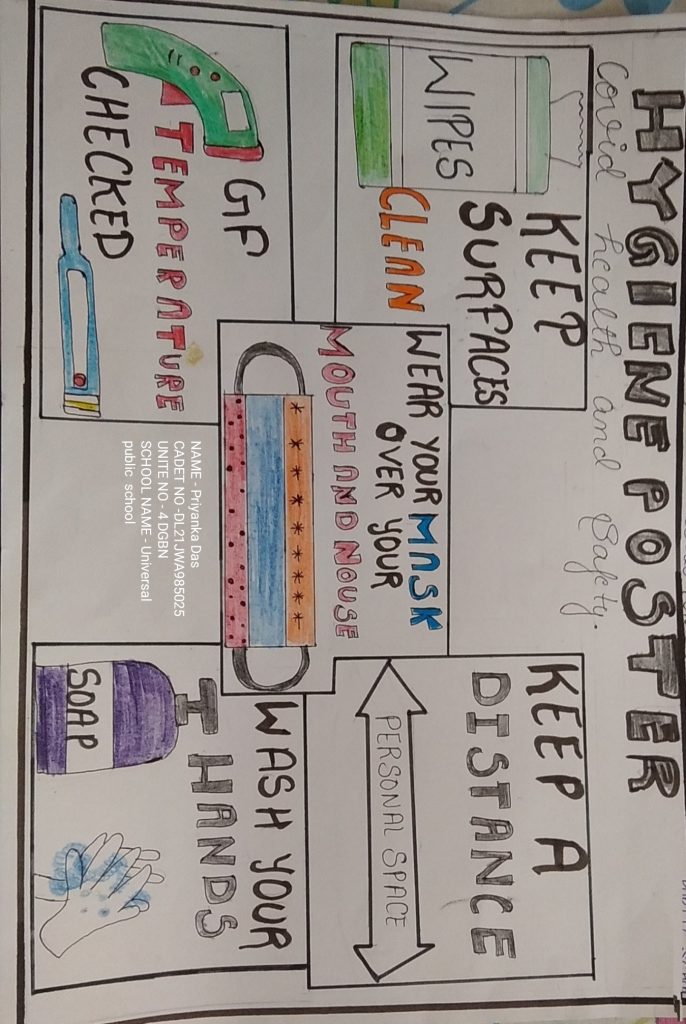 HYGIENE POSTER
Covid health and Safety.
WIPES
KEEP
SURFACES
CLEAN
KEEP A
DISTANCE
PERSONAL SPACE
WEAR YOUR MASK
OVER YOUR
MOUTH AND NOUSE
GF
TEMPERATURE
CHECKED
WASH YOUR
HANDS
SOAP
NAME - Priyanka Das
CADET NO -DL21JWA985025
UNITE NO - 4 DGBN
SCHOOL NAME - Universal
public school